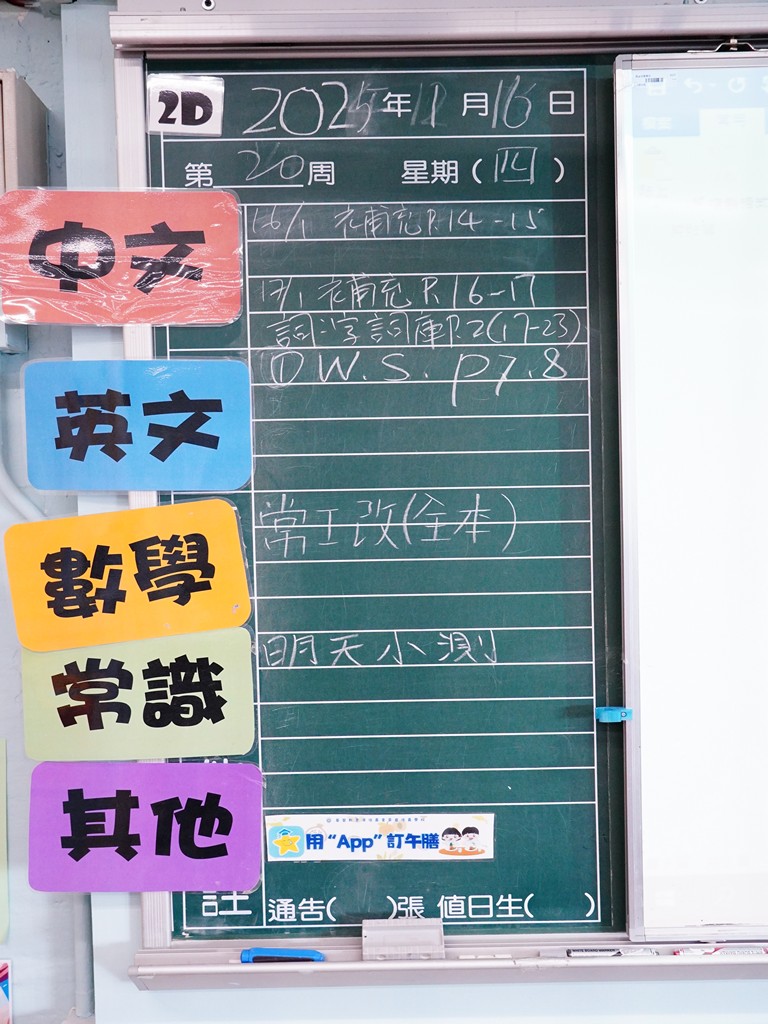 2D 2025年 1月16日
第20周 星期(四)
中文
16/1 補充P.14-15
17/1 補充P.16-17
詞:字詞庫P.2(17-23)
英文
① W.S. p7.8
數學
常工改(全本)
常識
明天小測
其他
用“App”訂午膳
註 通告( )張 值日生( )